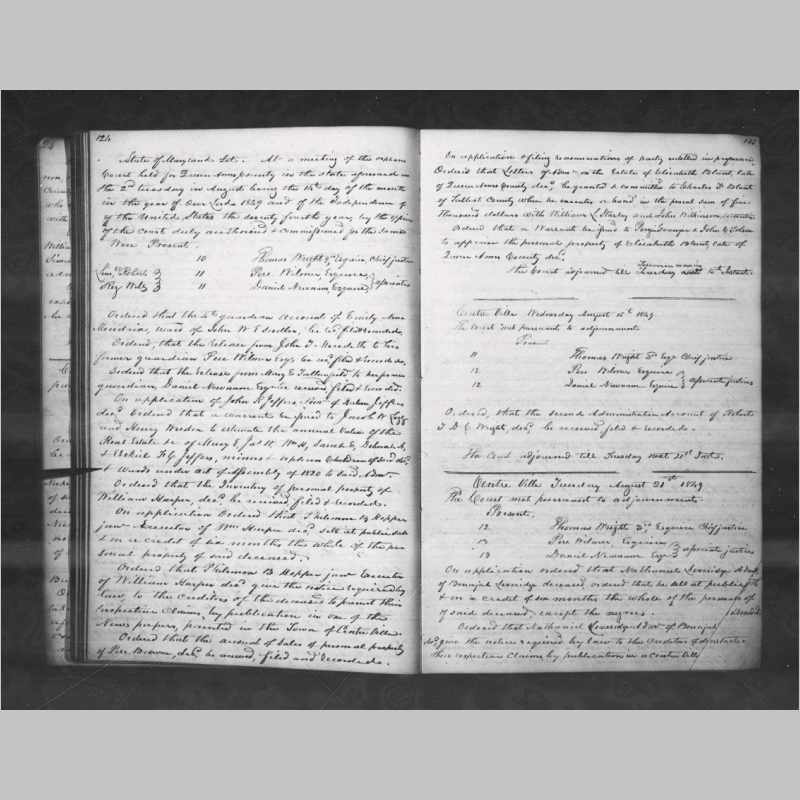 124
State of Maryland Sct. At a meeting of the orphans
Court held for Queen Anns county in the state aforesaid on
the 2nd tuesday in August being the 14th day of the month
in the year of Our Lord 1849 and of the Independence
of the United States the seventy fourth year, by the
of the Court duly authorised & commissioned for the same
Were Present.
10 Thomas Wright 3d Esquire Chief justice
11 Pere Wilmer Esquire
11 Daniel Newnam Esquire associates
Ordered that the 4th guardian Account of Emily Ann
ward of John W. be filed & recorded.
Ordered, that the release from John T. Meredith to his
former guardian Pere Wilmer Esqr be filed & recorded.
Ordered that the release from Mary E. to her former
guardian Daniel Newnam Esquire received, filed & recorded.
On application of John Jeffers, Admr of Jeffers
decd Ordered that a warrant be issued to Jacob W.
and Henry to estimate the annual value of the
Real Estate &c of Mary E, Jas H. Wm H, Sarah E,
& Ezekiel F G Jeffers, minors & orphan children of said decd
& wards under act of Assembly of 1830 to said Admr.
Ordered that the Inventory of personal property of
William Harper, decd be received, filed & recorded.
On application Ordered that Philemon B Hopper
junr Executor of Wm Harper decd, sell at public sale
& on a credit of six months the whole of the per
sonal property of said deceased.
Ordered that Philemon B. Hopper junr Executor
of William Harper decd give the notice required by
law to the Creditors of the deceased to present their
respective Claims, by publication in one of the
News papers, printed in the Town of Centre Ville.
Ordered that the account of Sales of personal property
of Pere decd, be received, filed and recorded.
On application & filing renunciations of party entitled in preference
Ordered that Letters of Admn on the Estate of Elizabeth Blunt, late
of Queen Anns County decd, be granted & committed to Charles D. Blunt
of Talbot County when he executes a bond in the penal sum of five
Thousand dollars with William L. and John Wilkinson, securities
Ordered that a Warrant be issued to & John E.
to appraise the personal property of Elizabeth Blunt late of
Queen Anns County decd.
tomorrow morning
The Court adjourned till 15th Instant.
Centre Ville Wednesday August 15th 1849
The Court met pursuant to adjournment
Present
11 Thomas Wright 3d Esqr Chief justice
12 Pere Wilmer Esquire
12 Daniel Newnam Esquire associate justices
Ordered, that the Second Administration Account of Robert
T. D. C. Wright, decd, be received filed & recorded.
The Court adjourned till Tuesday next 21st Inst.
Centre Ville Tuesday August 21st 1849
The Court met pursuant to adjournment.
Present,
12 Thomas Wright 3d Esquire Chief justice
13 Pere Wilmer, Esquire
13 Daniel Newnam Esqr associate justices
On application ordered that Nathaniel Admr
of deceased, ordered that he sell at public sale
& on a credit of six months the whole of the personal
of said deceased, except the negroes.
Ordered that Nathaniel Admr of
decd give the notice required by law to the Creditors of deceased to
their respective Claims, by publication in a Centre Ville